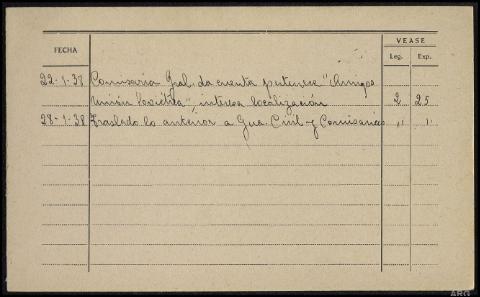 VEASE
FECHA
Leg. Exp.
22-1-38 Comisaria Gral. da cuenta pertenece "Amigos
Unión Sovietica", interesa localización 2 25
28-1-38 Traslado lo anterior a Gua. Civil y Comisarias " "
ARG